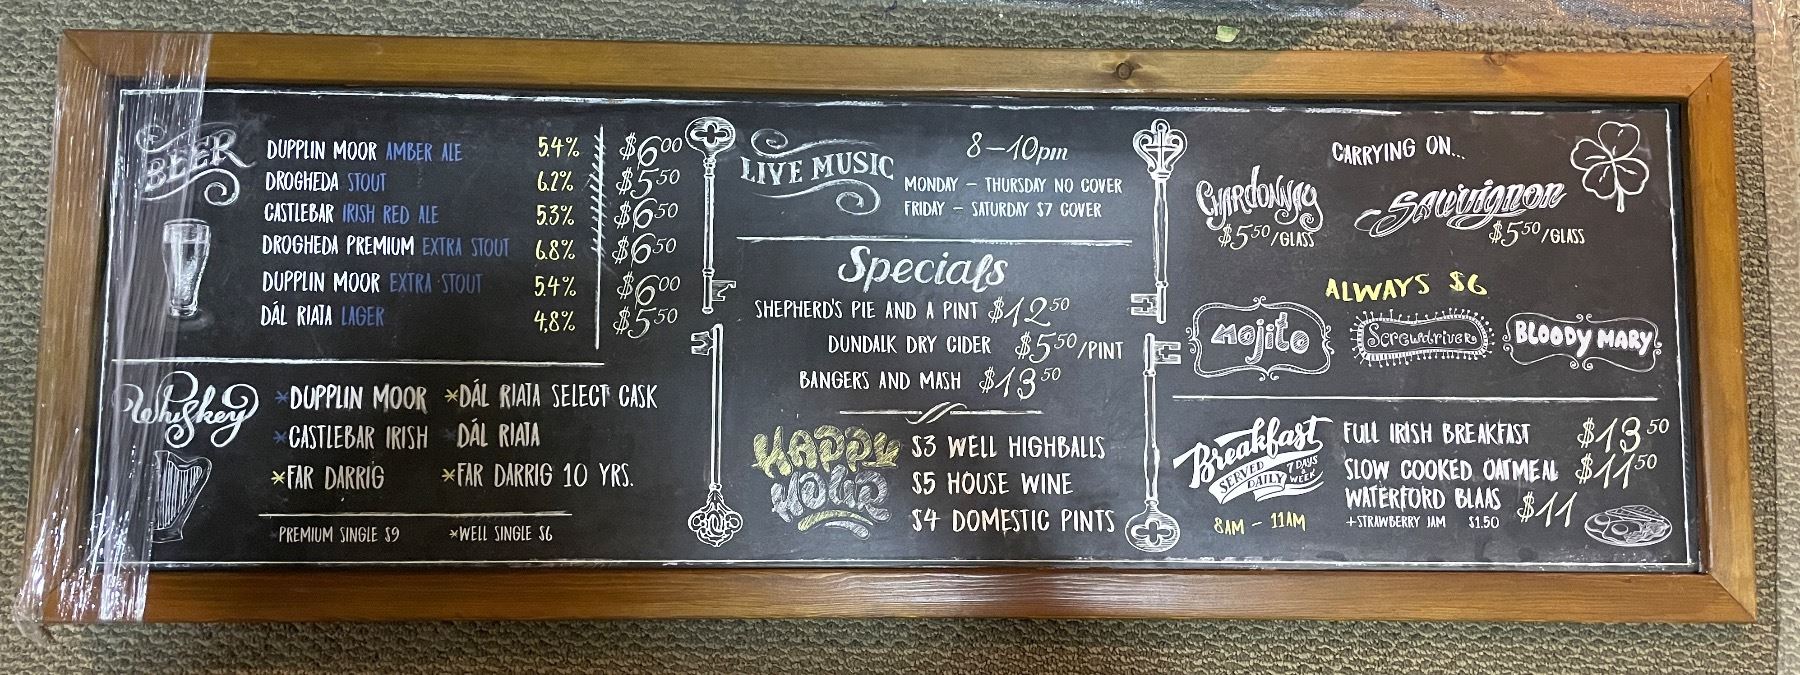 BEER
DUPPLIN MOOR AMBER ALE 5.4% $6.00
DROGHEDA STOUT 6.2% $5.50
CASTLEBAR IRISH RED ALE 5.3% $6.50
DROGHEDA PREMIUM EXTRA STOUT 6.8% $6.50
DUPPLIN MOOR EXTRA STOUT 5.4% $6.00
DÁL RIATA LAGER 4.8% $5.50
Whiskey
*DUPPLIN MOOR *DÁL RIATA SELECT CASK
*CASTLEBAR IRISH *DÁL RIATA
*FAR DARRIG *FAR DARRIG 10 YRS.
*PREMIUM SINGLE $9 *WELL SINGLE $6
LIVE MUSIC
8-10pm
MONDAY - THURSDAY NO COVER
FRIDAY - SATURDAY $7 COVER
Specials
SHEPHERD'S PIE AND A PINT $12.50
DUNDALK DRY CIDER $5.50/PINT
BANGERS AND MASH $13.50
HAPPY
HOUR
$3 WELL HIGHBALLS
$5 HOUSE WINE
$4 DOMESTIC PINTS
CARRYING ON...
Chardonnay
$5.50/GLASS
Sauvignon
$5.50/GLASS
ALWAYS $6
Mojito
Screwdriver
BLOODY MARY
Breakfast
SERVED DAILY
7 DAYS A WEEK
8AM - 11AM
FULL IRISH BREAKFAST $13.50
SLOW COOKED OATMEAL $11.50
WATERFORD BLAAS $11
+STRAWBERRY JAM $1.50